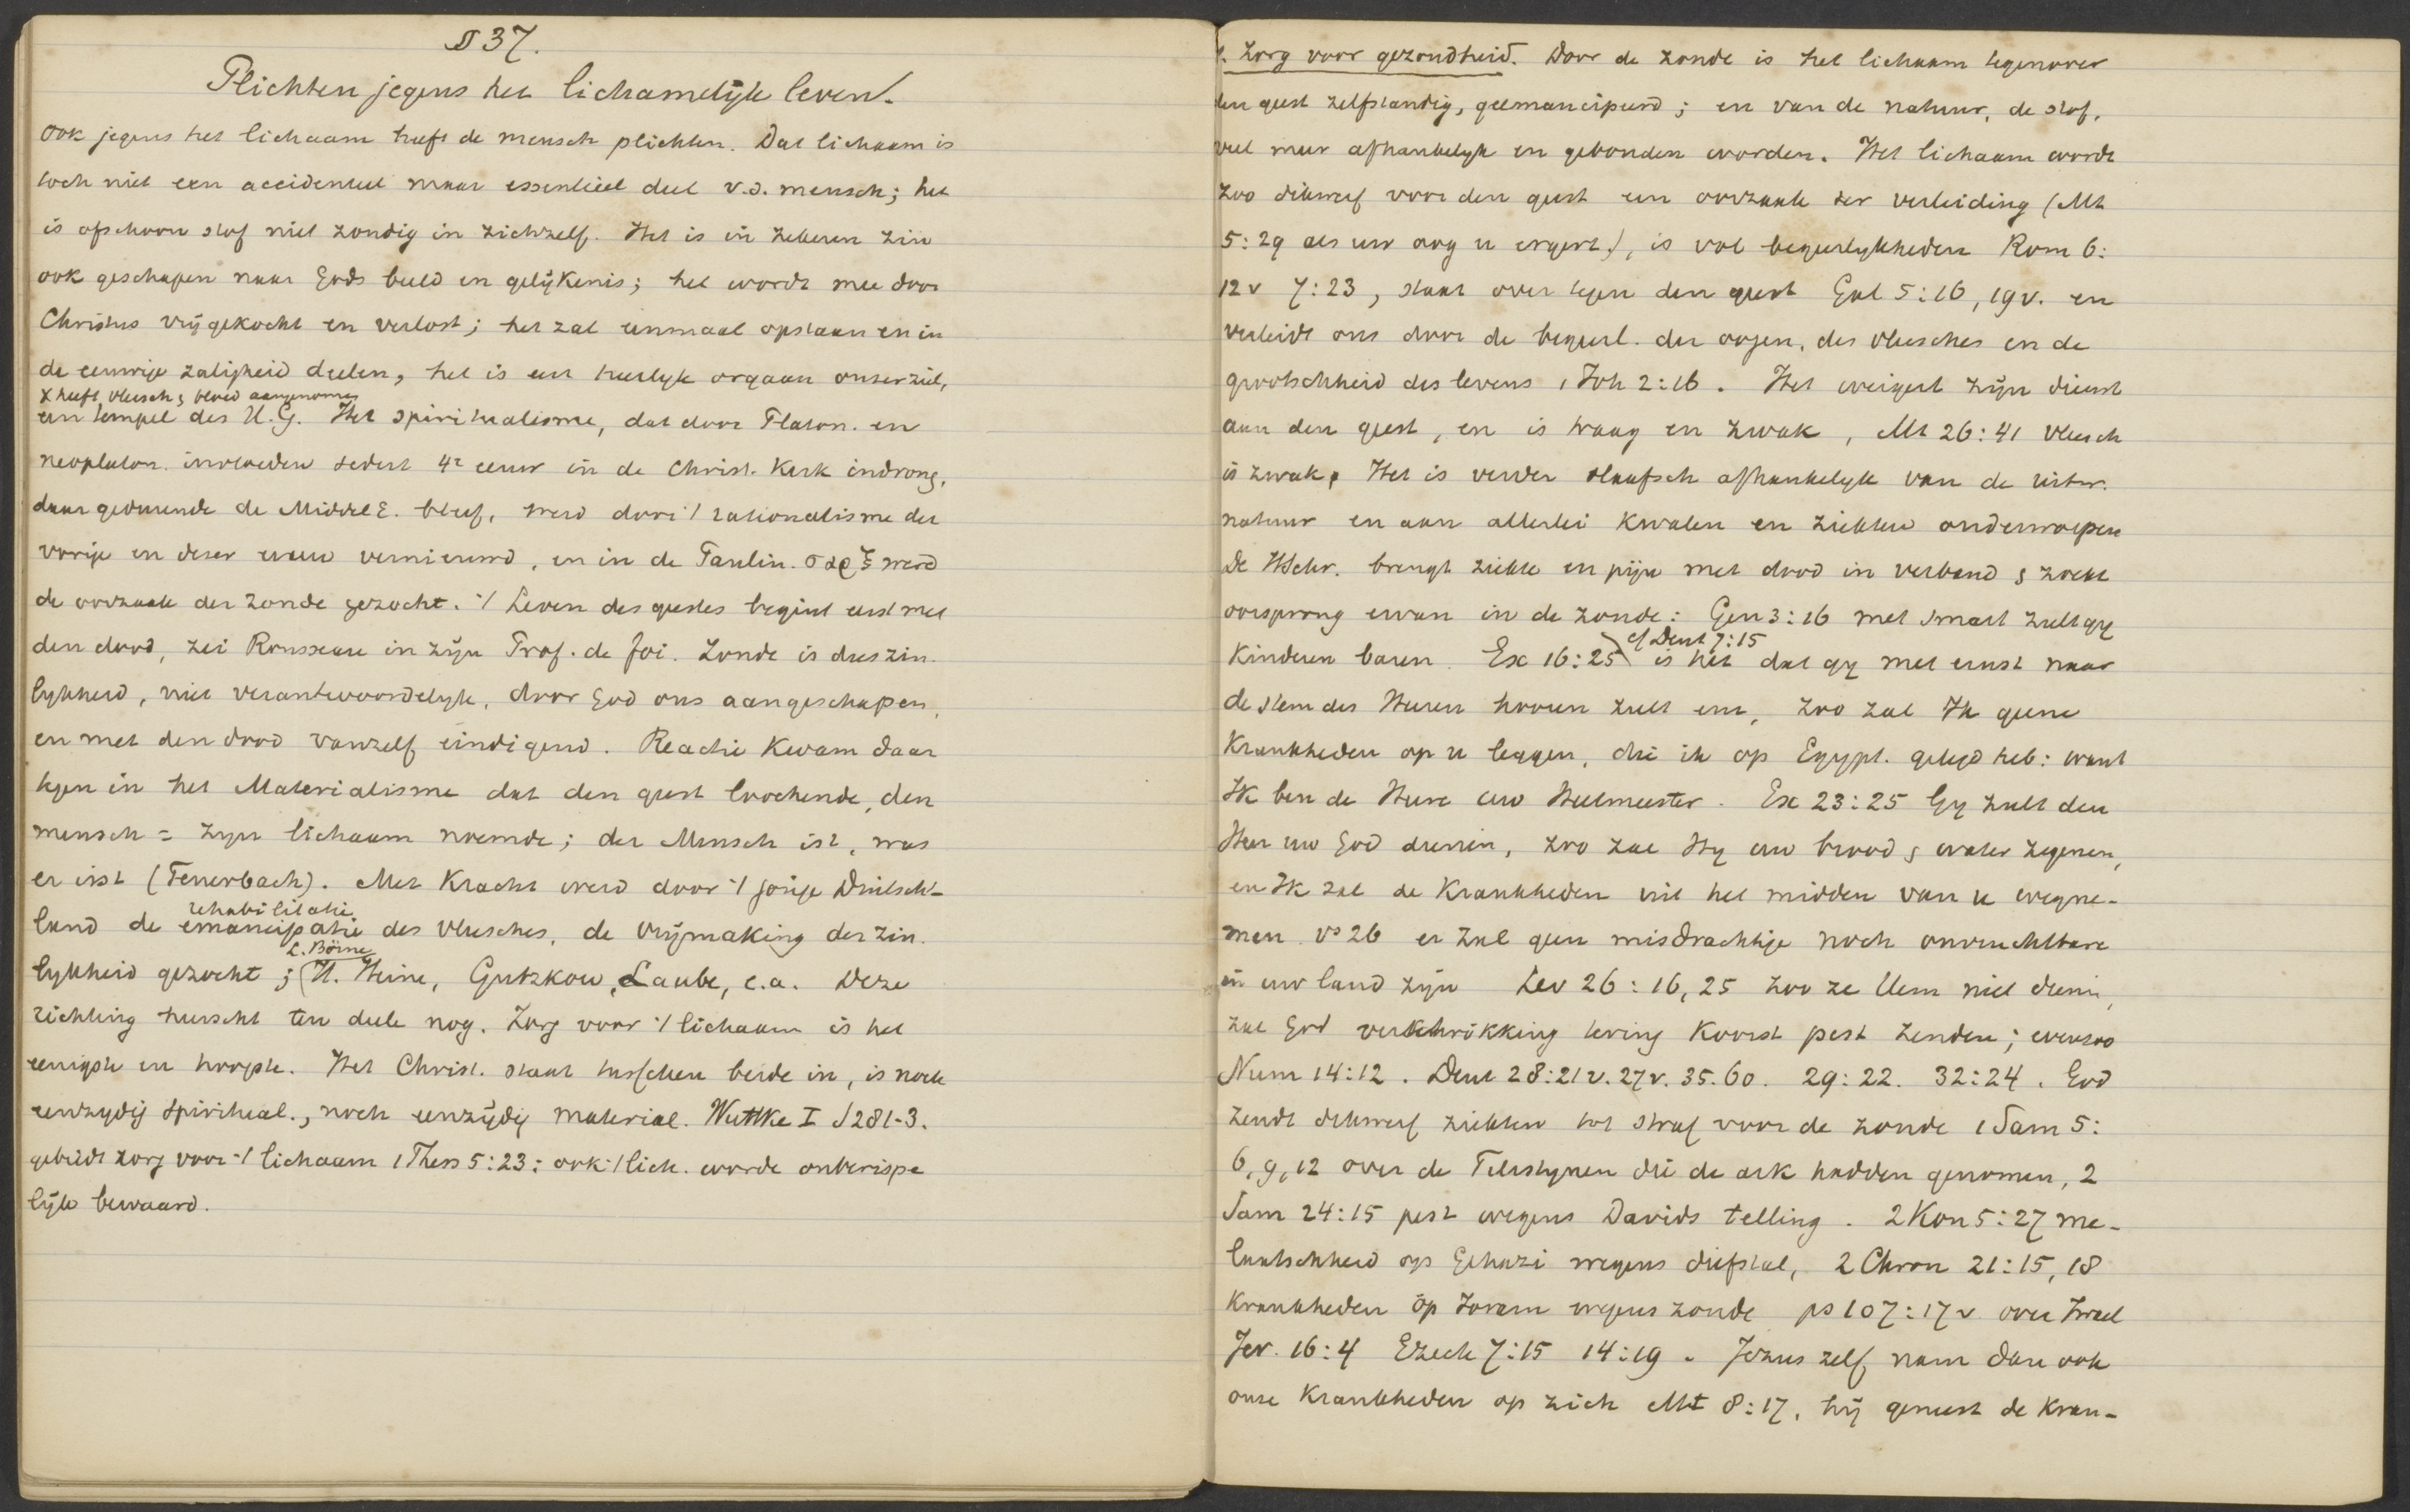 § 37.
Plichten jegens het lichamelijk leven.
Ook jegens het lichaam heeft de mensch plichten. Dat lichaam is
toch niet een accidenteel maar essentieel deel v.d. mensch; het
is ofschoon stof niet zondig in zichzelf. Het is in zekeren zin
ook geschapen naar Gods beeld en gelijkenis; het wordt mee door
Christus vrijgekocht en verlost; het zal eenmaal opstaan en in
de eeuwige zaligheid deelen, het is een heerlyk orgaan onzer ziel,
X heeft vleesch & bloed aangenomen
een tempel des H.G. Het spiritualisme, dat door Platon. en
neoplaton. invloeden sedert 4e eeuw in de Christ. Kerk indrong,
daar gedurende de MiddelE. bleef, werd door 't rationalisme der
vorige en dezer eeuw vernieuwd, en in de Paulin. σαρξ werd
de oorzaak der zonde gezocht. 't Leven des geestes begint eerst met
den dood, zei Rousseau in zijn Prof. de foi. Zonde is dus zin-
lykheid, niet verantwoordelyk, door God ons aangeschapen,
en met den dood vanzelf eindigend. Reactie kwam daar
tegen in het Materialisme dat den geest loochende, den
mensch = zyn lichaam noemde; der Mensch ist, was
er isst (Feuerbach). Met kracht werd door 't jonge Duitsch-
rehabilitatie
land de emancipatie des vleesches, de vrijmaking der zin-
L. Börne
lykheid gezocht; (H. Heine, Gutzkow, Laube, e.a. Deze
richting heerscht ten deele nog. Zorg voor 't lichaam is het
eenigste en hoogste. Het Christ. staat tusschen beide in, is noch
eenzydig spiritual., noch eenzijdig material. Wuttke I §281-3.
gebiedt zorg voor 't lichaam 1 Thess 5:23: ook 't lich. worde onberispe
lijk bewaard.
1. Zorg voor gezondheid. Door de zonde is het lichaam tegenover
den geest zelfstandig, geemancipeerd; en van de natuur, de stof,
veel meer afhankelyk en gebonden worden. Het lichaam wordt
zoo dikwerf voor den geest een oorzaak der verleiding (Mt
5:29 als uw oog u ergert), is vol begeerlykheden Rom 6:
12v 7:23, staat over tegen den geest Gal 5:16, 19v. en
verleidt ons door de begeerl. der oogen, des vleesches en de
grootschheid des levens 1 Joh 2:16. Het weigert zijn dienst
aan den geest, en is traag en zwak, Mt 26:41 vleesch
is zwak. Het is verder slaafsch afhankelyk van de uitw.
natuur en aan allerlei kwalen en ziekten onderworpen
De HSchr. brengt ziekte en pijn met dood in verband & zoekt
oorsprong ervan in de zonde: Gen 3:16 met smart zult gy
cf Deut 7:15
kinderen baren. Ex 15:26 is het dat gy met ernst naar
de stem des Heeren hooren zult enz, zoo zal Ik geene
Krankheden op u leggen, die ik op Egypt. gelegd heb: want
Ik ben de Heere uw Heelmeester. Ex 23:25 Gy zult den
Heer uw God dienen, zoo zal Hy uw brood & water zegenen,
en Ik zal de Krankheden uit het midden van u wegne-
men. vs 26 er zal geen misdrachtige noch onvruchtbare
in uw land zyn Lev 26:16, 25 zoo ze Hem niet dienen,
zal God verschrikking tering koorst pest zenden; evenzoo
Num 14:12. Deut 28:21v. 27v. 35. 60. 29:22. 32:24. God
zendt dikwerf ziekten tot straf voor de zonde 1 Sam 5:
6, 9, 12 over de Filistynen die de ark hadden genomen, 2
Sam 24:15 pest wegens Davids telling. 2 Kon 5:27 me-
laatschheid op Gehazi wegens diefstal, 2 Chron 21:15, 18
Krankheden op Joram wegens zonde ps 107:17v over Israel
Jer. 16:4 Ezech 7:15 14:19. Jezus zelf nam dan ook
onze Krankheden op zich Mt 8:17, hij geneest de Kran-